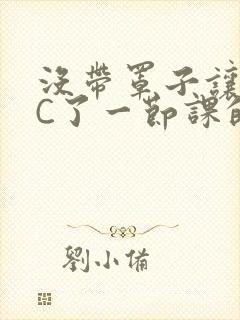 沒帶罩子讓
C了一節課的
劉小備